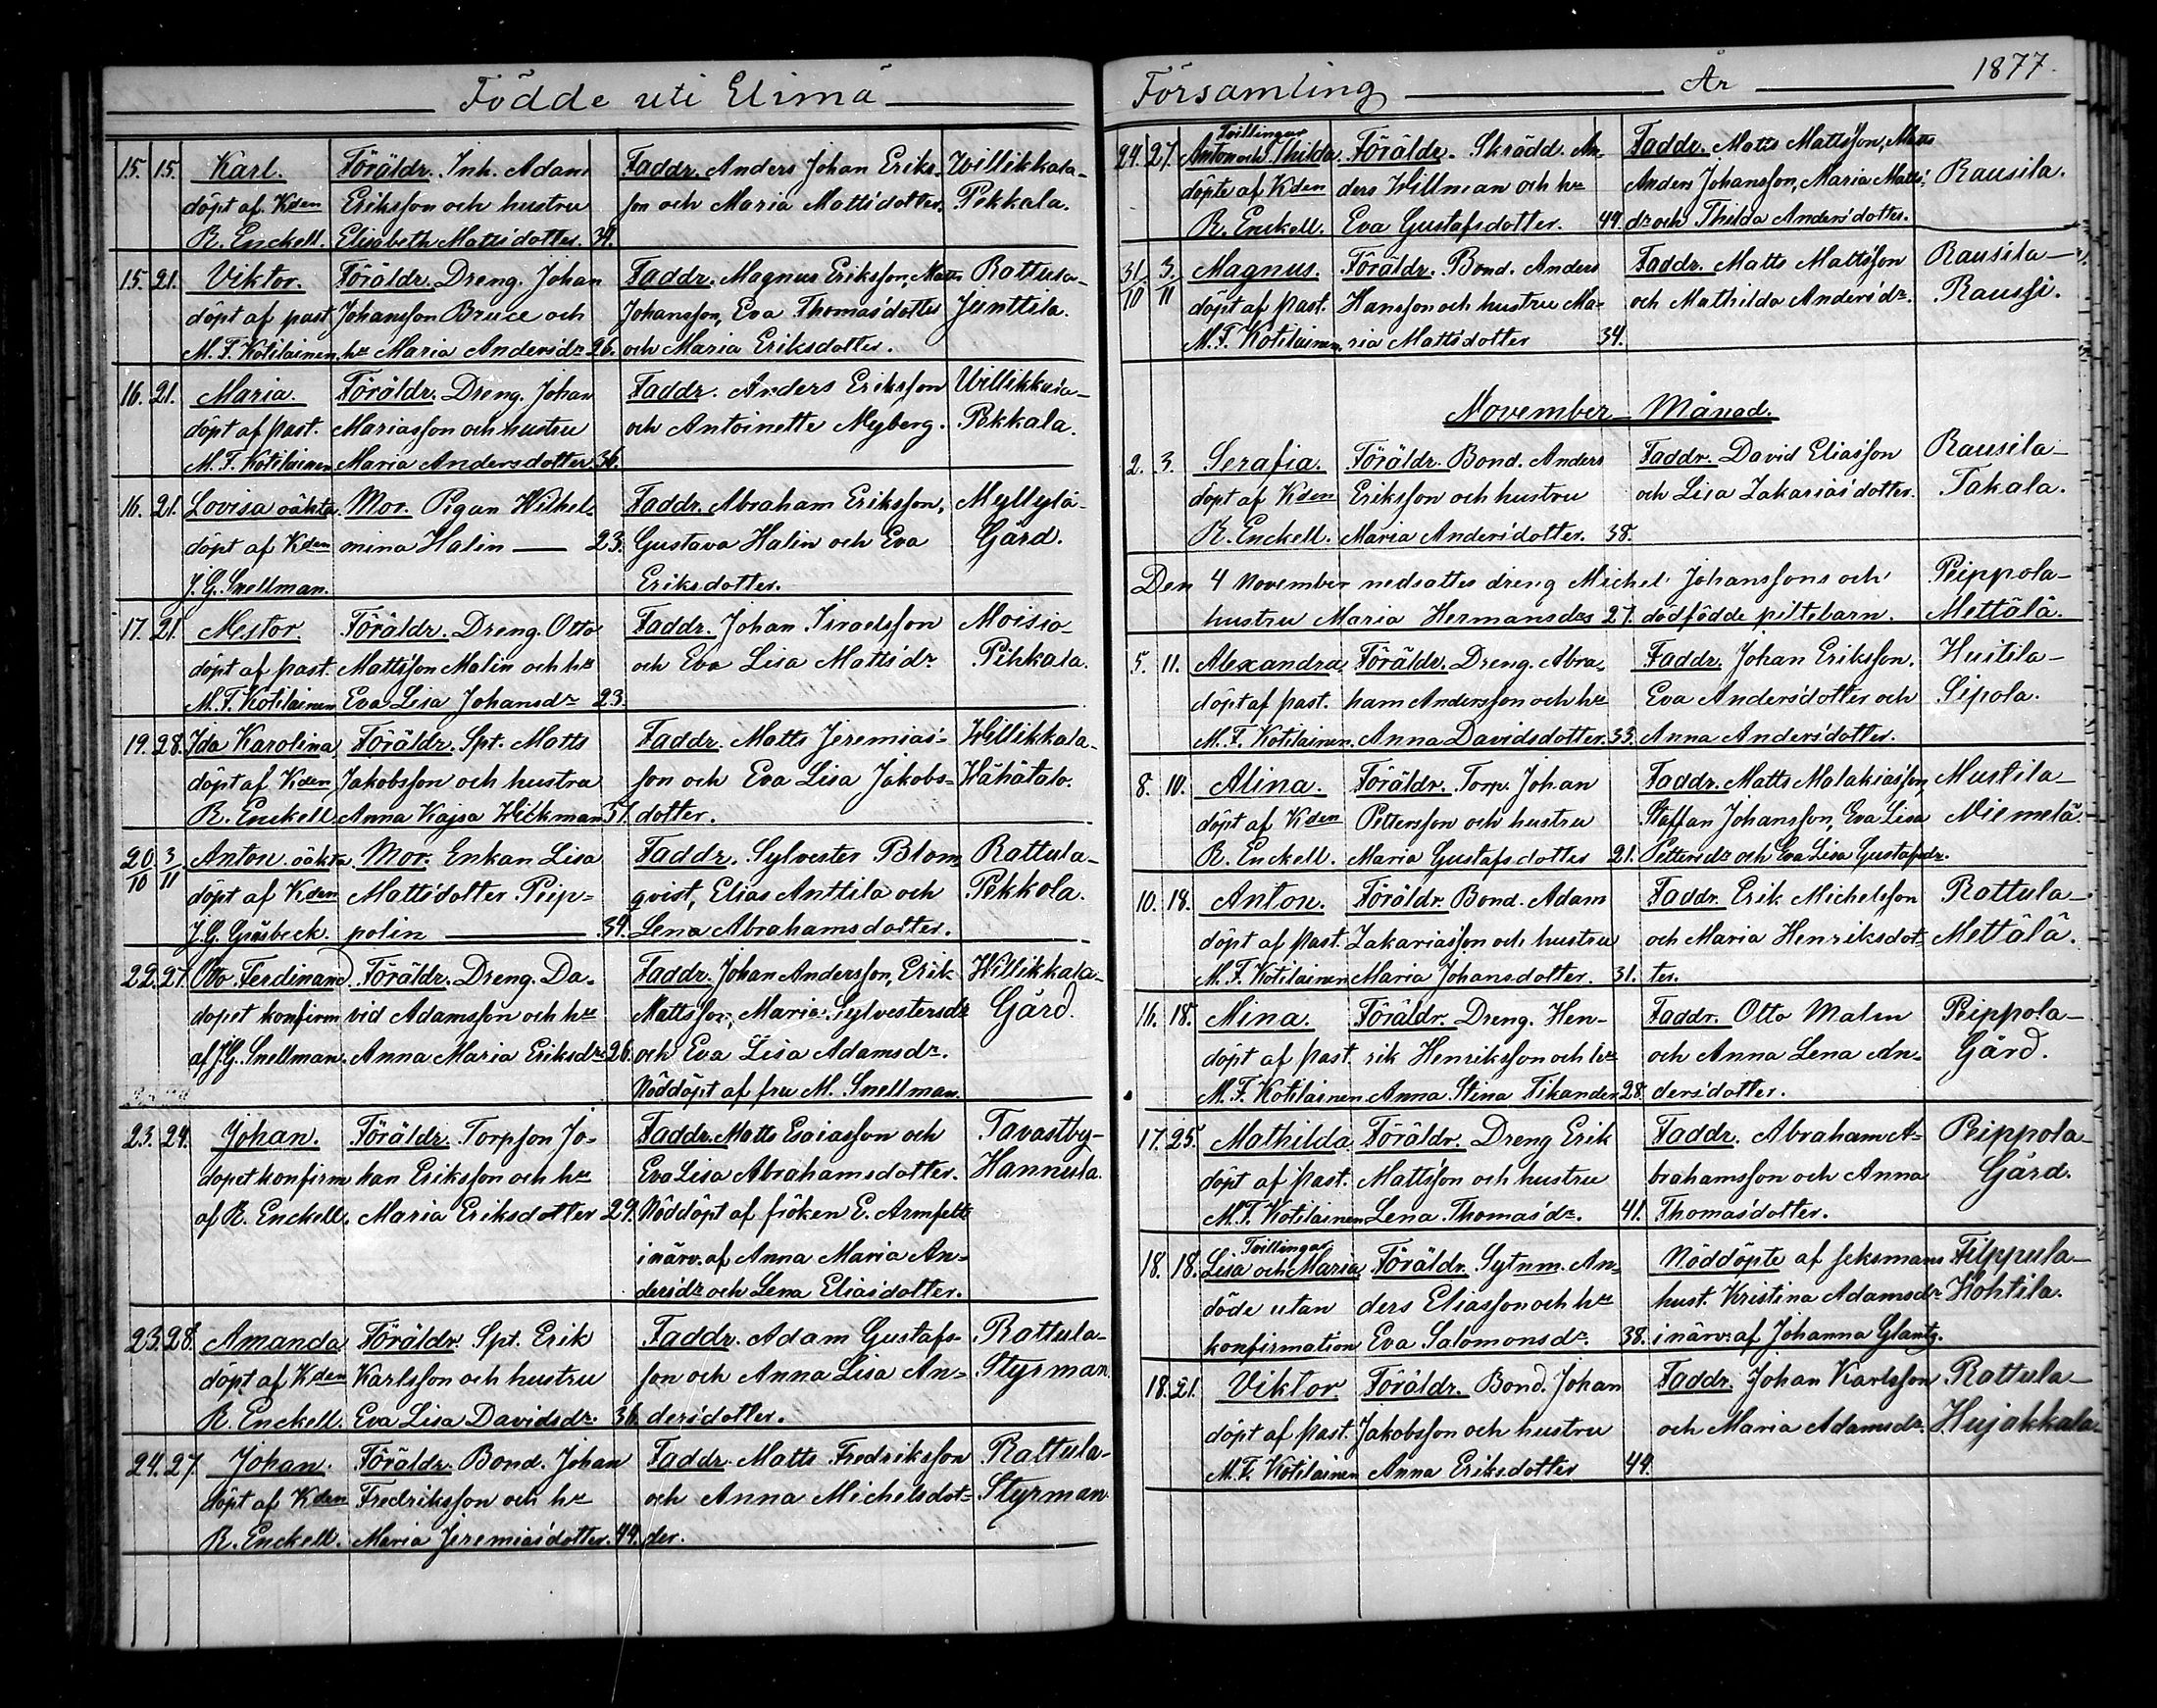 Födde uti Elimä
15. 15. Karl. Föräldr. Inh. Adam Faddr. Anders Johan Eriks- Willikkala-
döpt af Kden Eriksson och hustru son och Maria Matts'dotter. Pekkala.
R. Enckell. Elisabeth Matts'dotter. 34.
15. 21. Viktor. Föräldr. Dreng. Johan Faddr. Magnus Eriksson, Matts Rattula-
döpt af past. Johansson Bruce och Johansson, Eva Thomas'dotter Junttila.
M. F. Kotilainen. hu Maria Anders'dr 26. och Maria Eriksdotter.
16. 21. Maria. Föräldr. Dreng. Johan Faddr. Anders Eriksson Willikkala-
döpt af past. Mariasson och hustru och Antoinette Nyberg. Pekkala.
M. F. Kotilainen Maria Andersdotter 36.
16. 21. Lovisa oäkta. Mor. Pigan Wilhel- Faddr. Abraham Eriksson, Myllylä-
döpt af Kden mina Halin — 23. Gustava Halin och Eva Gård.
J. G. Snellman. Eriksdotter.
17. 21. Nestor. Föräldr. Dreng. Otto Faddr. Johan Israelsson Moisio-
döpt af past. Mattsson Malin och hu och Eva Lisa Matts'dr Pihkala.
M. F. Kotilainen Eva Lisa Johansdr 23.
19. 28. Ida Karolina, Föräldr. Spt. Matts Faddr. Matts Jeremias- Willikkala-
döpt af Kden Jakobsson och hustru son och Eva Lisa Jakobs- Wähätalo.
R. Enckell. Anna Kajsa Wickman 31. dotter.
20/10 3/11 Anton oäkta Mor. Enkan Lisa Faddr. Sylvester Blom- Rattula-
döpt af Kden Matts'dotter Piip- qvist, Elias Anttila och Pekkola.
J. G. Gråsbeck. polin — 34. Lena Abrahamsdotter.
22. 27. Otto Ferdinand Föräldr. Dreng. Da- Faddr. Johan Andersson, Erik Willikkala-
dopet konfirm vid Adamsson och hu Mattsson, Maria Sylvestersdr Gård.
af J. G. Snellman. Anna Maria Eriksdr 26. och Eva Lisa Adamsdr.
Nöddöpt af fru M. Snellman.
23. 24. Johan. Föräldr. Torpson Jo- Faddr. Matts Esaiasson och Tavastby-
dopet konfirm han Eriksson och hu Eva Lisa Abrahamsdotter. Hannula.
af R. Enckell. Maria Eriksdotter 29. Nöddöpt af fröken E. Armfelt
i närv. af Anna Maria An-
ders'dr och Lena Elias'dotter.
23. 28. Amanda Föräldr. Spt. Erik Faddr. Adam Gustafs- Rattula-
döpt af Kden Karlsson och hustru son och Anna Lisa An- Styrman.
R. Enckell. Eva Lisa Davidsdr. 36. ders'dotter.
24. 27. Johan. Föräldr. Bond. Johan Faddr. Matts Fredriksson Rattula-
döpt af Kden Fredriksson och hu och Anna Michelsdot- Styrman.
R. Enckell. Maria Jeremias'dotter. 44. der.
Församling År 1877.
Tvillingar
24. 27. Anton och Thilda. Föräldr. Skrädd. An- Faddr. Matts Mattsson, Matts
döpte af Kden ders Willman och hu Anders Johansson, Maria Matts'- Rausila.
R. Enckell. Eva Gustafsdotter. 49. dr och Thilda Anders'dotter.
31/10 3/11 Magnus. Föräldr. Bond. Anders Faddr. Matts Mattsson Rausila-
döpt af past. Hansson och hustru Ma- och Mathilda Anders'dr. Raussi.
M. F. Kotilainen. ria Matts'dotter 34.
November Månad.
2. 3. Serafia. Föräldr. Bond. Anders Faddr. David Eliasson Rausila-
döpt af Kden Eriksson och hustru och Lisa Zakarias'dotter. Takala.
R. Enckell. Maria Anders'dotter. 38.
Den 4 November nedsattes dreng Michel Johanssons och Peippola-
hustru Maria Hermansdrs 27. dödfödde piltebarn. Mettälä.
5. 11. Alexandra, Föräldr. Dreng. Abra- Faddr. Johan Eriksson. Huitila-
döpt af past. ham Andersson och hu Eva Anders'dotter och Sipola.
M. F. Kotilainen. Anna Davidsdotter. 33. Anna Anders'dotter.
8. 10. Alina. Föräldr. Torp. Johan Faddr. Matts Malakiasson, Mustila-
döpt af Kden Pettersson och hustru Staffan Johansson, Eva Lisa Niemelä.
R. Enckell. Maria Gustafsdotter 21. Pettersdr och Eva Lisa Gustafsdr.
10. 18. Anton. Föräldr. Bond. Adam Faddr. Erik Michelsson Rattula-
döpt af past. Zakariasson och hustru och Maria Henriksdot- Mettälä.
M. F. Kotilainen Maria Johansdotter. 31. ter.
16. 18. Nina. Föräldr. Dreng. Hen- Faddr. Otto Malin Peippola-
döpt af past. rik Henriksson och hu och Anna Lena An- Gård.
M. F. Kotilainen Anna Stina Tikander 28. ders'dotter.
17. 25. Mathilda. Föräldr. Dreng Erik Faddr. Abraham A- Peippola-
döpt af past. Mattsson och hustru brahamsson och Anna Gård.
M. F. Kotilainen Lena Thomas'dr. 41. Thomas'dotter.
Tvillingar
18. 18. Lisa och Maria, Föräldr. Sytnm. An- Nöddöpte af seksmans Filppula-
döde utan ders Eliasson och hu hust. Kristina Adamsdr Kohtila.
konfirmation Eva Salomonsdr. 38. i närv. af Johanna Glantz.
18. 21. Viktor Föräldr. Bond. Johan Faddr. Johan Karlsson Rattula-
döpt af past. Jakobsson och hustru och Maria Adamsdr. Hujakkala.
M. F. Kotilainen Anna Eriksdotter 44.